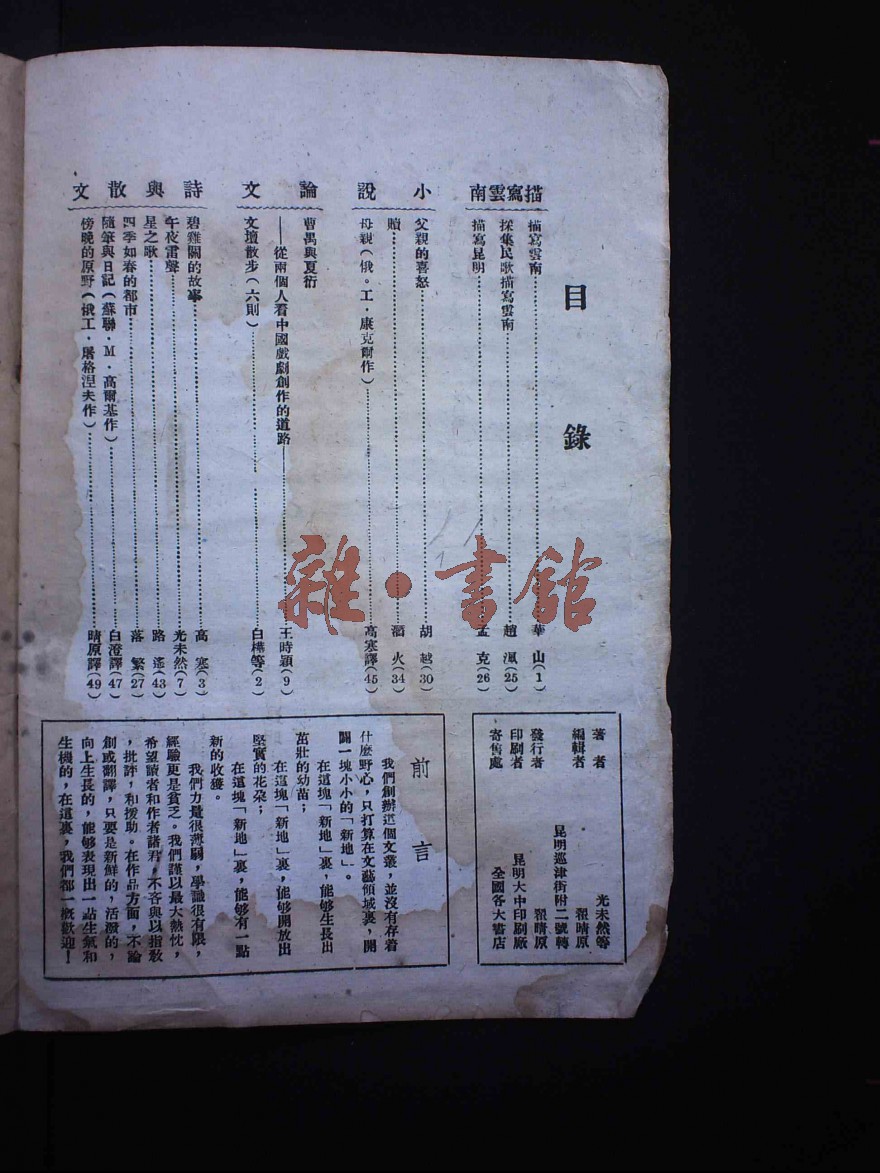 目錄
描寫雲南
描寫雲南……華山(1)
採集民歌描寫雲南……趙渢(25)
描寫昆明……孟克(26)
小說
父親的喜怒……胡越(30)
贖……溜火(34)
母親(俄。工·康克爾作)……高寒譯(45)
論文
曹禺與夏衍
——從兩個人看中國戲劇創作的道路——……王時穎(9)
文壇散步(六則)……白樺等(2)
詩與散文
碧雞關的故事……高寒(3)
午夜雷聲……光未然(7)
星之歌……路遙(43)
四季如春的都市……落繁(27)
隨筆與日記(蘇聯·M·高爾基作)……白澄譯(47)
傍晚的原野(俄工·屠格涅夫作)……晴原譯(49)
著者 光未然等
編輯者 翟晴原
昆明巡津街附二號轉
發行者 翟晴原
印刷者 昆明大中印刷廠
寄售處 全國各大書店
前言
我們創辦這個文叢,並沒有存着
什麼野心,只打算在文藝領域裏,開
闢一塊小小的「新地」。
在這塊「新地」裏,能够生長出
茁壯的幼苗;
在這塊「新地」裏,能够開放出
堅實的花朵;
在這塊「新地」裏,能够有一點
新的收獲。
我們力量很薄弱,學識很有限,
經驗更是貧乏。我們謹以最大熱忱,
希望讀者和作者諸君,不吝與以指敎
,批評,和援助。在作品方面,不論
創或翻譯,只要是新鮮的,活潑的,
向上生長的,能够表現出一點生氣和
生機的,在這裏,我們都一槪歡迎!
雜·書館